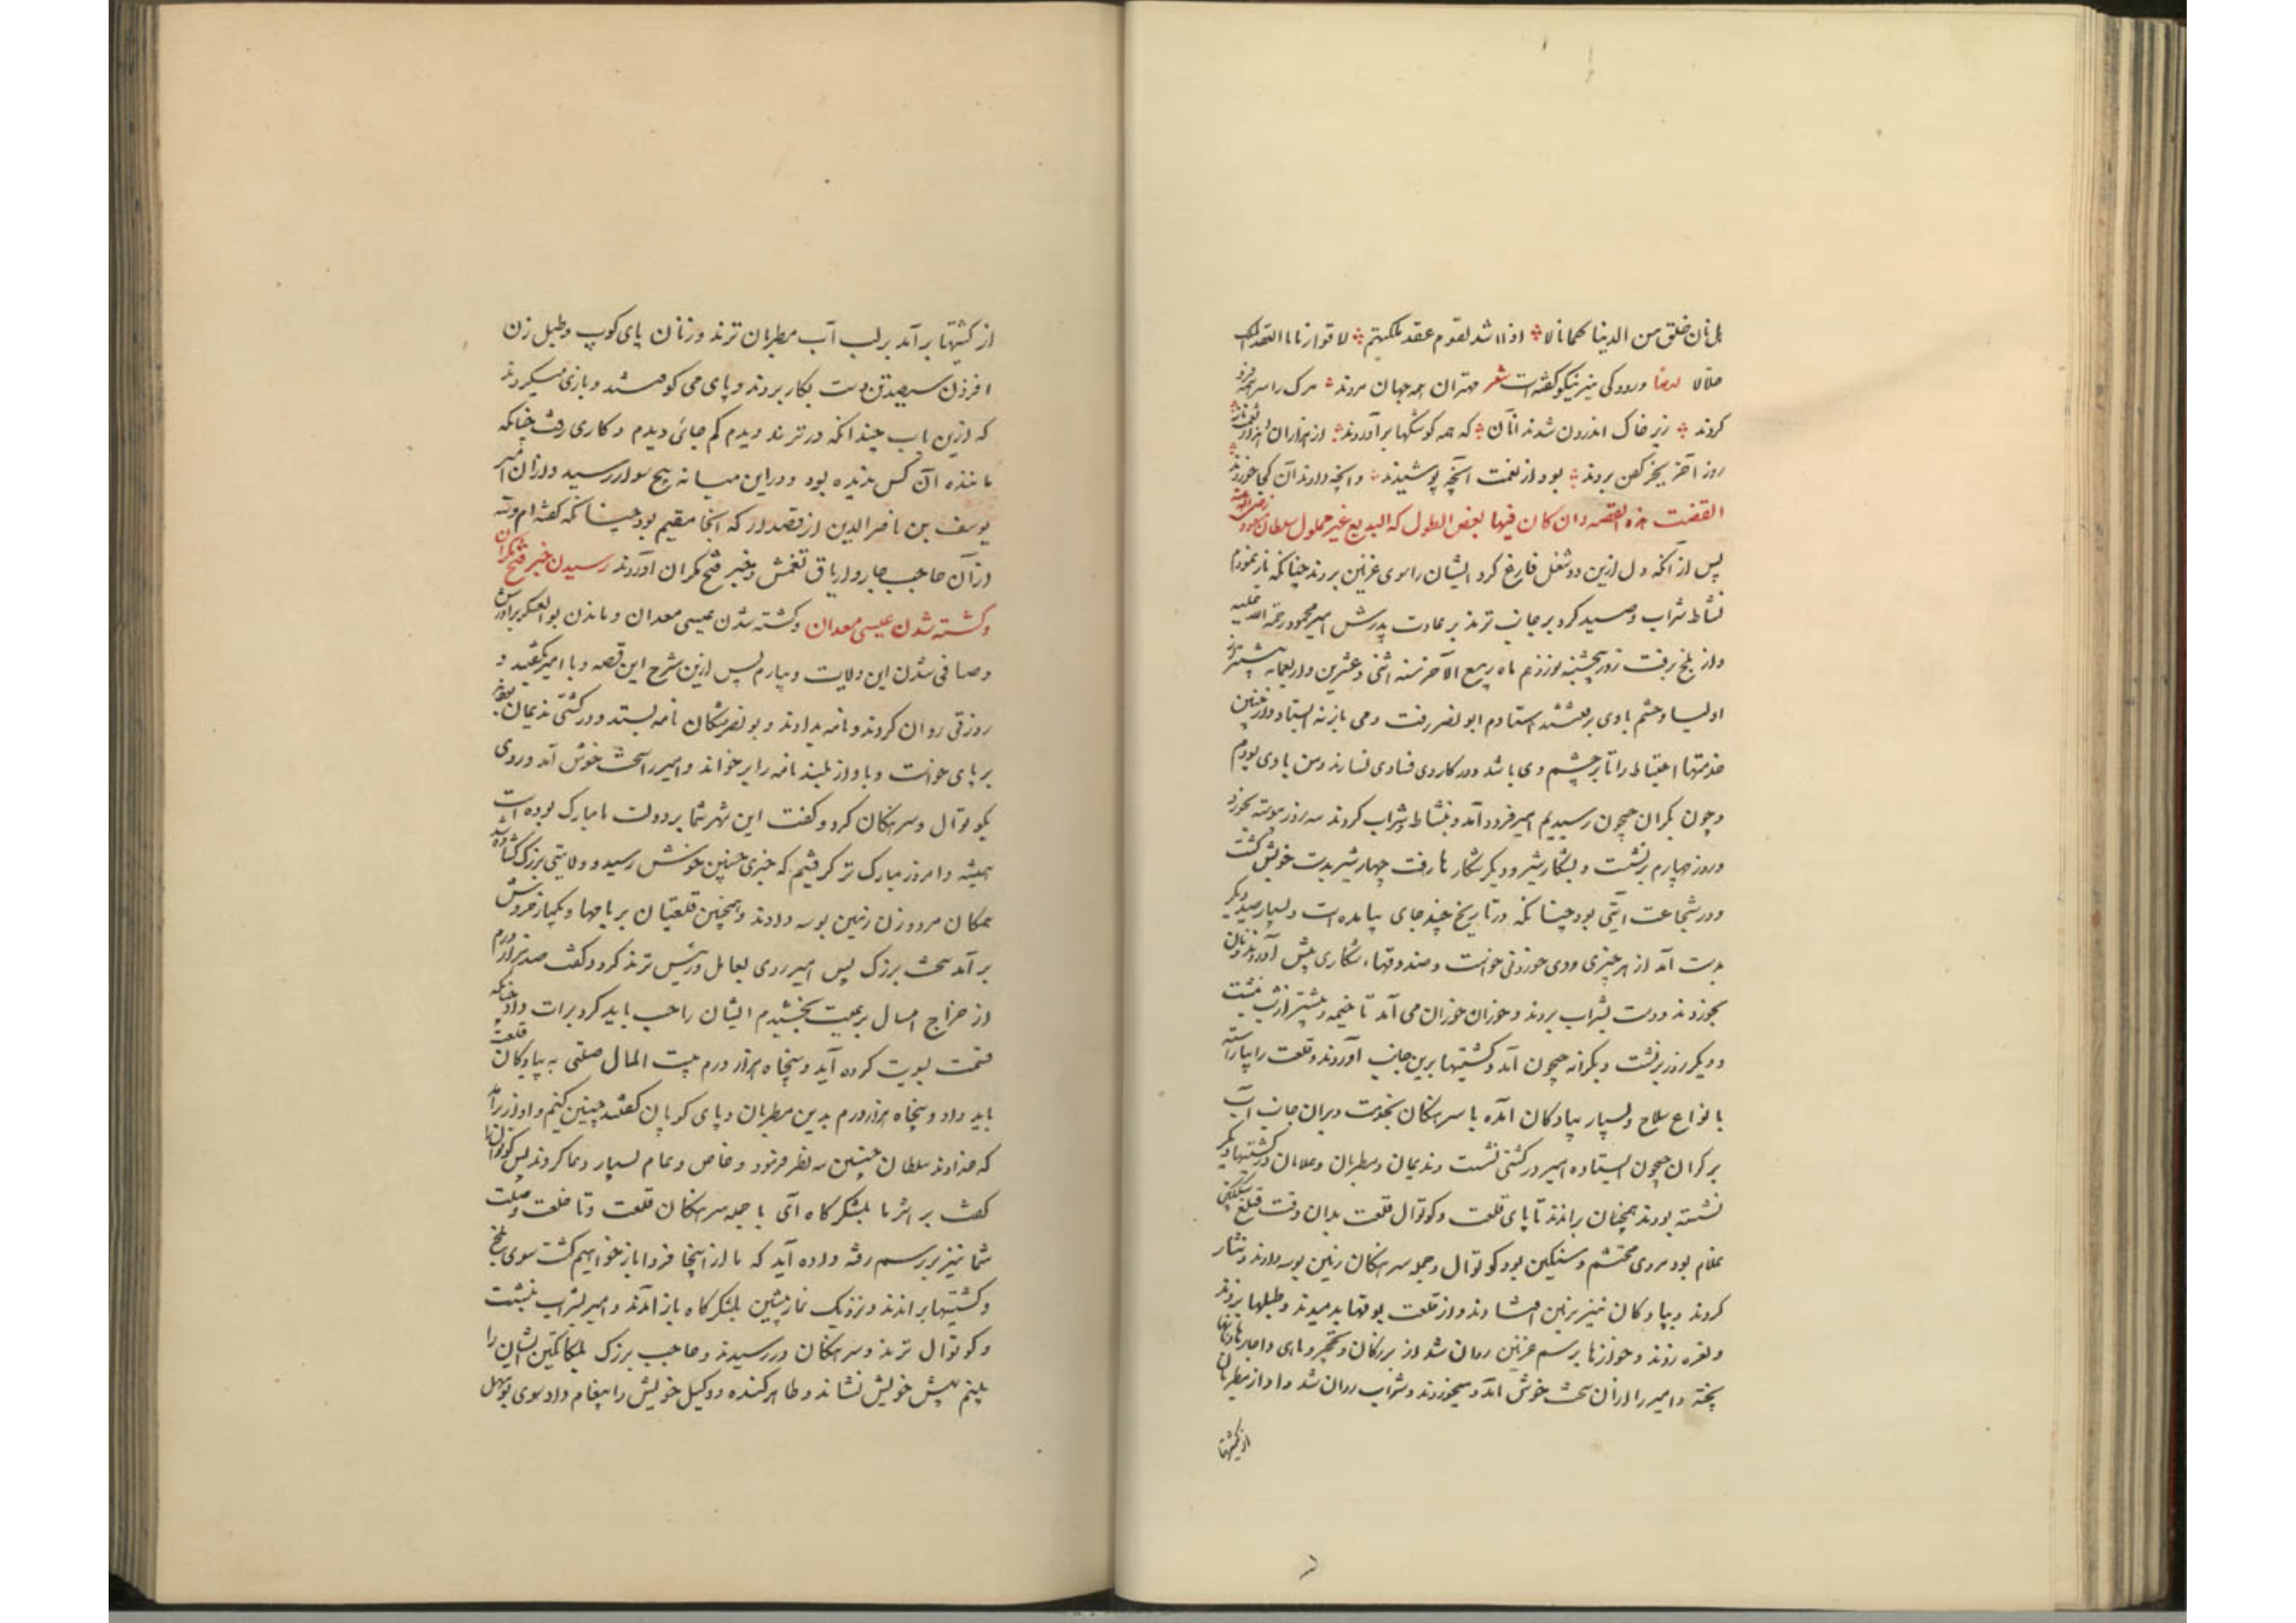 بل نان خلق من الدینا کمانالا اذا اشد لقوم عقد ملکهتم لا قوا زنا ما العقد الملک
حلالا ایضا ورودکی نیز نیکو گفته است شعر مهتران همه جهان مردند مرک را سر همه فرو
کردند زیر خاک اندرون شدند انآن که همه کوشکها برآوردند از هزاران هزار نعمت و ناز
روز آخر بجز کفن بردند بود از نعمت آنچه پوشیدند و انچه دادند آن کجا خوردند
القضت هذه القصه و ان کان فیها بعض الطول که البدیع غیر مملول سلطان مسعود رضی الله عنه
پس از آنکه دل ازین دو شغل فارغ کرد ایشان را سوی غزنین بردند چنانکه باز نمودم
نشاط شراب و صید کرد بر جانب ترمذ بر عادت پدرش امیر محمود رحمة الله علیه
و از بلخ برفت روز پنجشنبه نوزدهم ماه ربیع الآخر سنه اثنی و عشرین و اربعمایه بیشتر از
اولیا و حشم با وی برفتند استادم ابو نصر رفت و می باز نه ایستاد و از چنین
خدمتها احتیاط را تا بر چشم وی باشد و در کار وی فسادی نسازند و من با وی بودم
و چون بکران جیحون رسیدیم امیر فرود آمد و نشاط شراب کردند سه روز پیوسته بخورد
و روز چهارم برنشست و بشکار شیر و دیگر شکار ها رفت چهار شیر بدست خویش کشت
و در شجاعت آیتی بود چنانکه در تاریخ چند جای بیامده است و بسیار صید دیگر
بدست آمد از هر چیزی و وی خوردنی خواست و صندوقهاء شکاری پیش آوردند و نان
بخوردند و دست بشراب بردند و خوران خوران می آمد تا خیمه و بیشتر از شب بنشست
و دیگر روز برنشست و بکرانه جیحون آمد و کشتیها برین جانب آوردند و قلعت را بیاراسته
با نواع سلاح و بسیار پیادکان آمده با سرهنکان بخدمت و بران جانب آب
بر کران جیحون ایستاده امیر در کشتی نشست و ندیمان و مطربان و غلامان در کشتیهاء دیگر
نشسته بودند همچنان براندند تا پای قلعت و کوتوال قلعت بدان وقت قتلغ سبکتکین
غلام بود مردی محتشم و سنکین بود کوتوال و جمله سرهنکان زمین بوسه دادند و نثار
کردند و پیادکان نیز بزمین افتادند و از قلعت بوقها بدمیدند و طبلها بزدند
و نعره زدند و خوانها برسم غزنین روان شد از بزرکان و نخچیر و ماهی و اچارها و نانها
پخته و امیر را از آن سخت خوش آمد و میخوردند و شراب روان شد و آواز مطربان
از کشتیها
از کشتیها برآمد بر لب آب مطربان ترمذ و زنان پای کوب و طبل زن
افزون سیصد تن دست بکار بردند و پای می کوفتند و بازی میکردند
که ازین باب چندانکه در ترمذ دیدم کم جائی دیدم و کاری رفت چنانکه
ماننده آن کس ندیده بود و دراین میانه پنج سوار رسید دو از آن امیر
یوسف بن ناصر الدین از قصدار که آنجا مقیم بود چنانکه گفته ام و سه
از آن حاجب جامه دار یارق تغمش و خبر فتح مکران آوردند رسیدن خبر فتح مکران
و کشته شدن عیسی معدان و کشته شدن عیسی معدان و ماندن بو العسکر برادرش
و صافی شدن این ولایت و بیارم پس ازین شرح این قصه و با امیر بگفتند و
زورقی روان کردند و نامه بدادند و بو نصر مشکان نامه بستد و در کشتی ندیمان بود
بر پای خواست و باواز بلند نامه را برخواند و امیر را سخت خوش آمد و روی
بکوتوال و سرهنکان کرد و گفت این شهر شما بر دولت ما مبارک بوده است
همیشه و امروز مبارک تر گرفتیم که خبری چنین خوش رسید و ولایتی بزرک گشاده شد
همکان مرد و زن زمین بوسه دادند و همچنین قلعتیان بر بامها و بیکبار خروش
برآمد سخت بزرک پس امیر روی بعامل و رئیس ترمذ کرد و گفت صد هزار درم
از خراج امسال برعیت بخشیدم ایشان را حسب باید کرد و برات داد چنانکه
قسمت بسویت کرده آید و پنجاه هزار درم بیت المال صلتی به پیادکان قلعت
باید داد و پنجاه هزار درم بدین مطربان و پای کوبان گفتند چنین کنیم و آواز برآمد
که خداوند سلطان چنین سه نظر فرمود و خاص و عام بسیار دعا کردند پس کوتوال را
گفت بر اثر ما بلشکرگاه آی با جمله سرهنکان قلعت و تا خلعت و صلت
شما نیز بر رسم رفته داده آید که ما از اینجا فردا باز خواهیم گشت سوی بلخ
و کشتیها براندند و نزدیک نماز پیشین بلشکرگاه باز آمدند و امیر بشراب بنشست
و کوتوال ترمذ و سرهنکان در رسیدند و حاجب بزرک بلکاتکین ایشان را
بنیم پیش خویش نشاند و طاهر کنده و وکیل خویش را پیغام داد سوی بوسهل